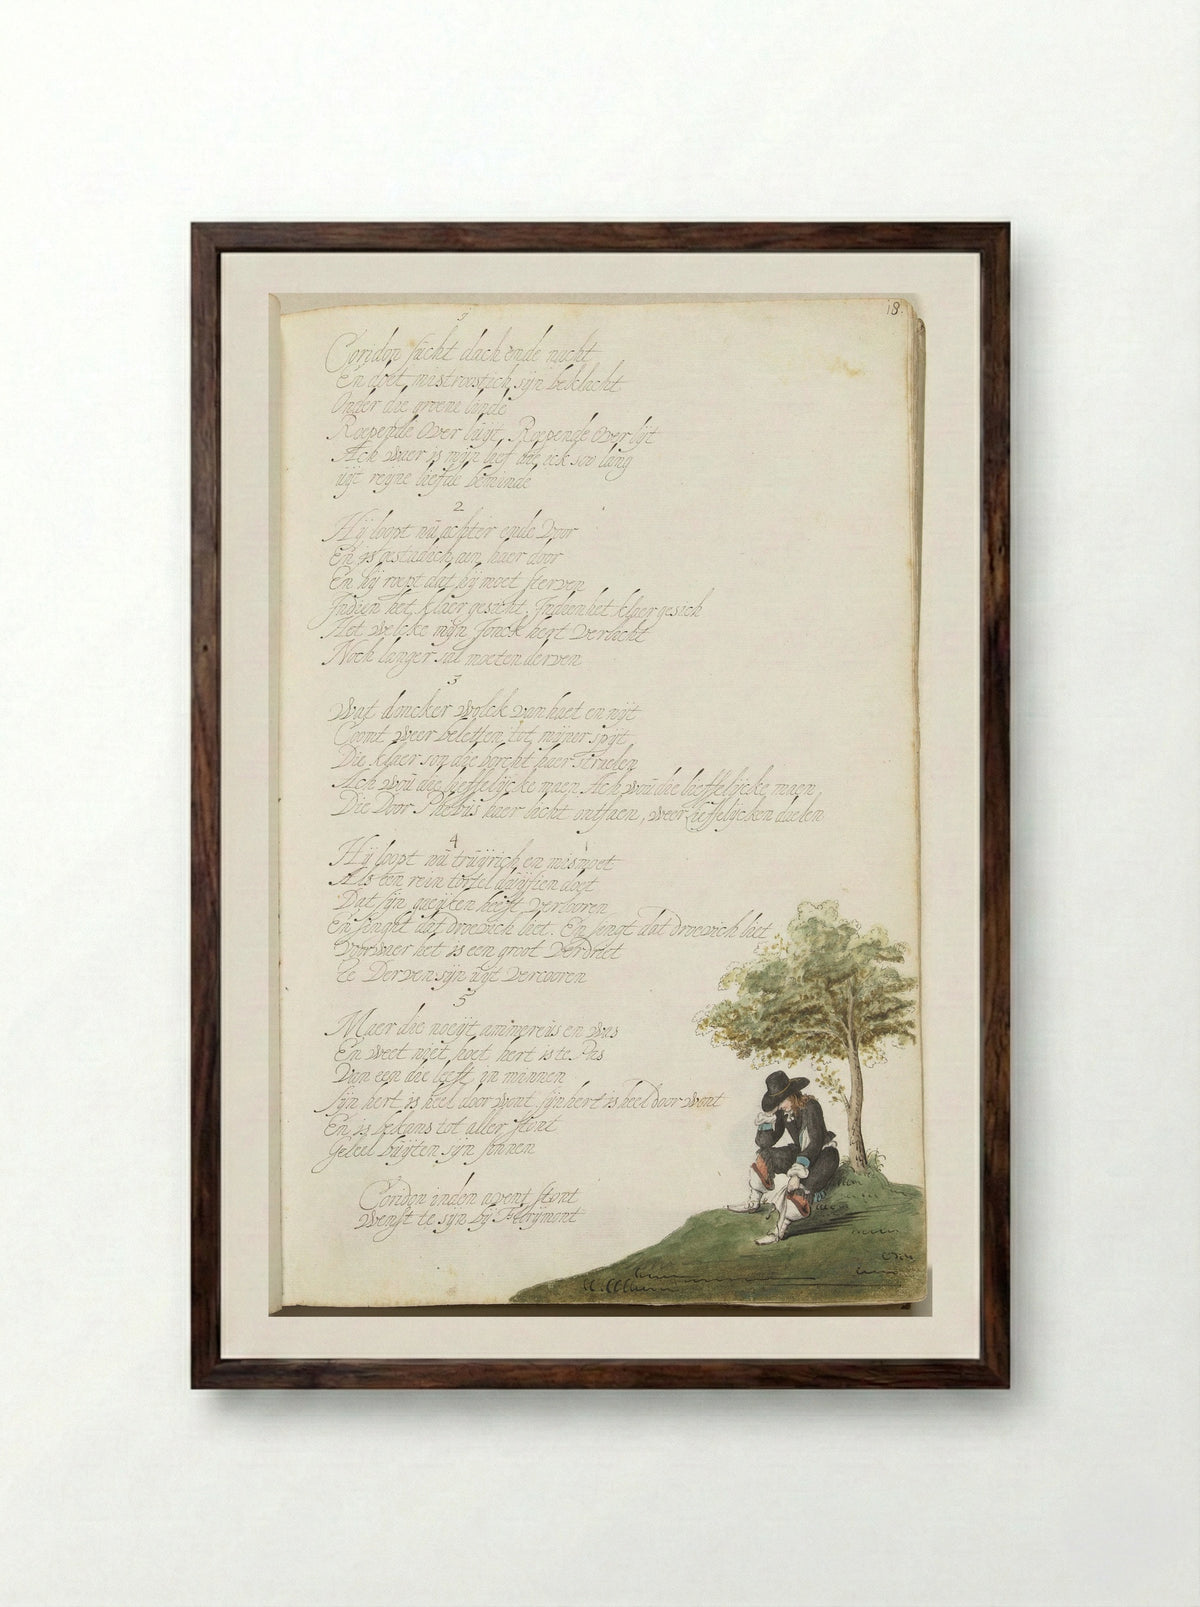 18.
1
Coridon sucht dach ende nacht
En doet mistroostich sijn beklacht
Onder die groene linde
Roepende over luijt, Roepende over lijt
Ach waer is mijn lief die ick soo lang
uijt reijne liefde beminde
2
Hij loopt nu achter ende voor
En is gestadich aen haer door
En hij roept dat hij moet sterven
Indien het klaer gesicht, Indien het klaer gesich
Het welcke mijn Jonck hert verlicht
Noch langer sal moeten derven
3
Wat doncker wolck van haet en nijt
Coomt weer beletten tot mijner spijt
Die klaer son die berght haer straelen
Ach wou die lieffelijcke maen Ach wou die lieffelijcke maen
Die Door Phebus haer licht ontfaen, weer lieffelijcken daelen
4
Hij loopt nu truijrich en mismoet
Als een rein tortel duijfien doet
Dat sijn gaeijken heeft verlooren
En singht dat droevich liet. En singt dat droevich liet
Voorwaer het is een groot verdriet
te Derven sijn uijt vercooren
5
Maer die noeijt aminereus en was
En weet niet hoet hert is te Pas
Van een die leeft in minnen
sijn hert is heel door wont sijn hert is heel door wont
En is bekans tot aller stont
Geleel buijten sijn sinnen
Coridon inden avent stont
Wenst te sijn bij Florijmont